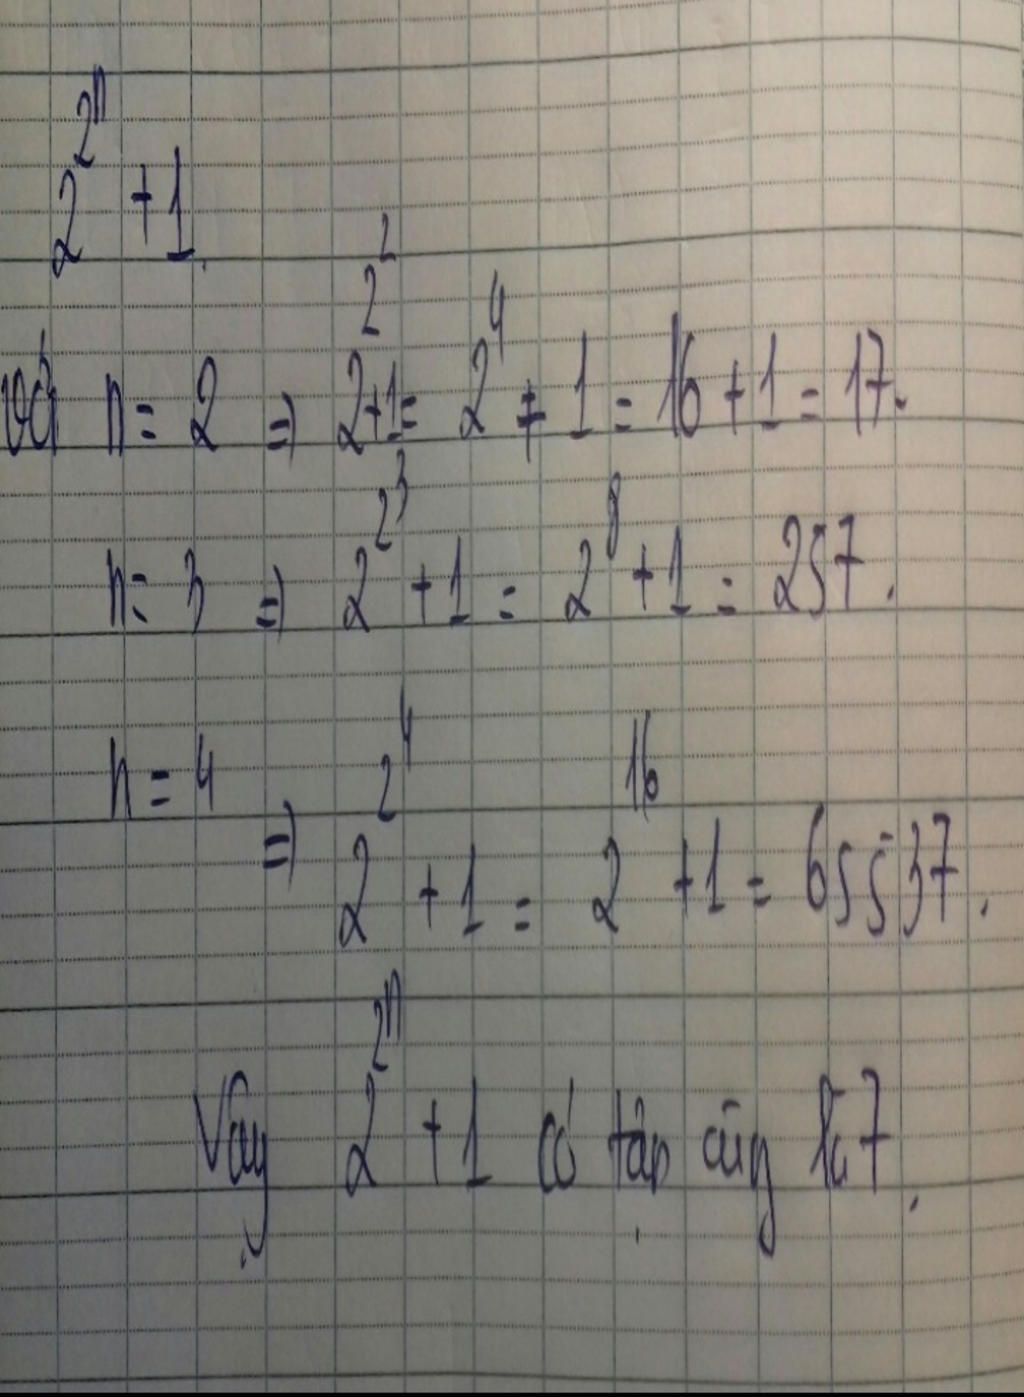 2^{2^n} + 1.
Với n = 2 => 2^{2^2}+1= 2^4 + 1 = 16 + 1 = 17.
n = 3 => 2^{2^3} + 1 = 2^8 + 1 = 257.
n = 4 => 2^{2^4} + 1 = 2^{16} + 1 = 65537.
Vậy 2^{2^n} + 1 có tận cùng là 7.